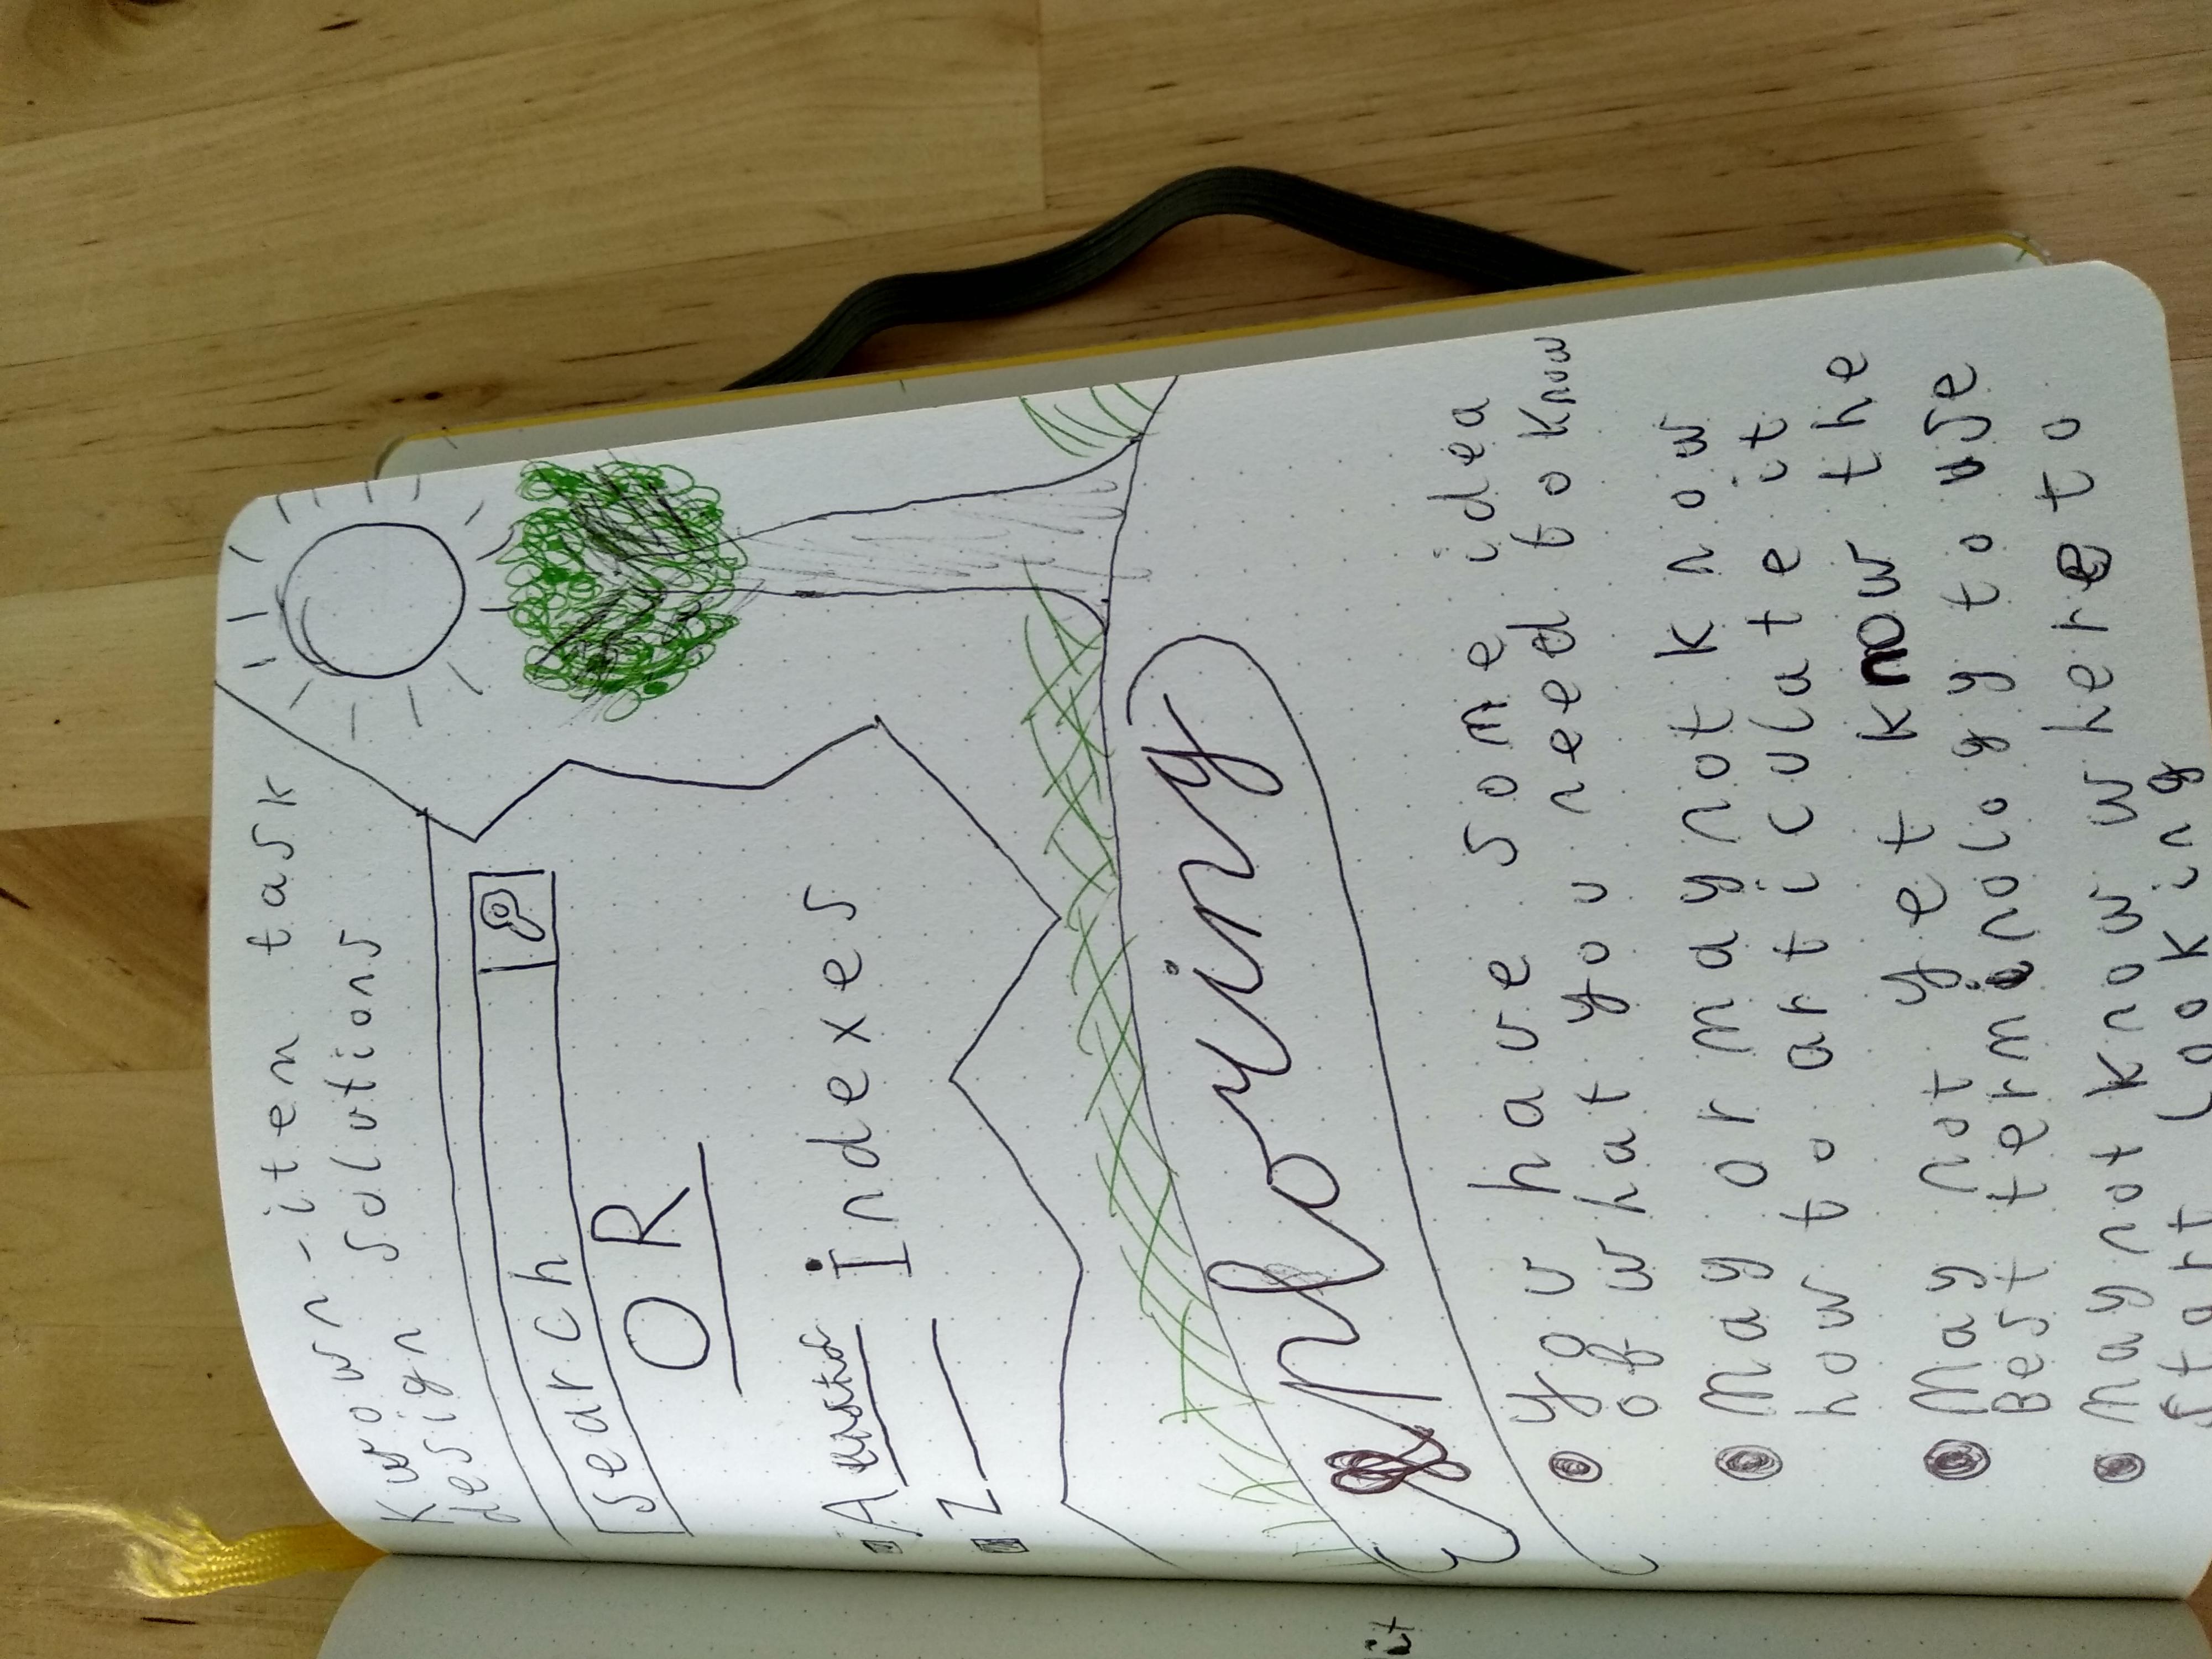 Known-item task
design solutions
search
OR
A
Indexes
Z
Exploring
You have some idea
of what you need to know
May or may not know
how to articulate it
May not yet know the
Best terminology to use
May not know where to
start looking
it